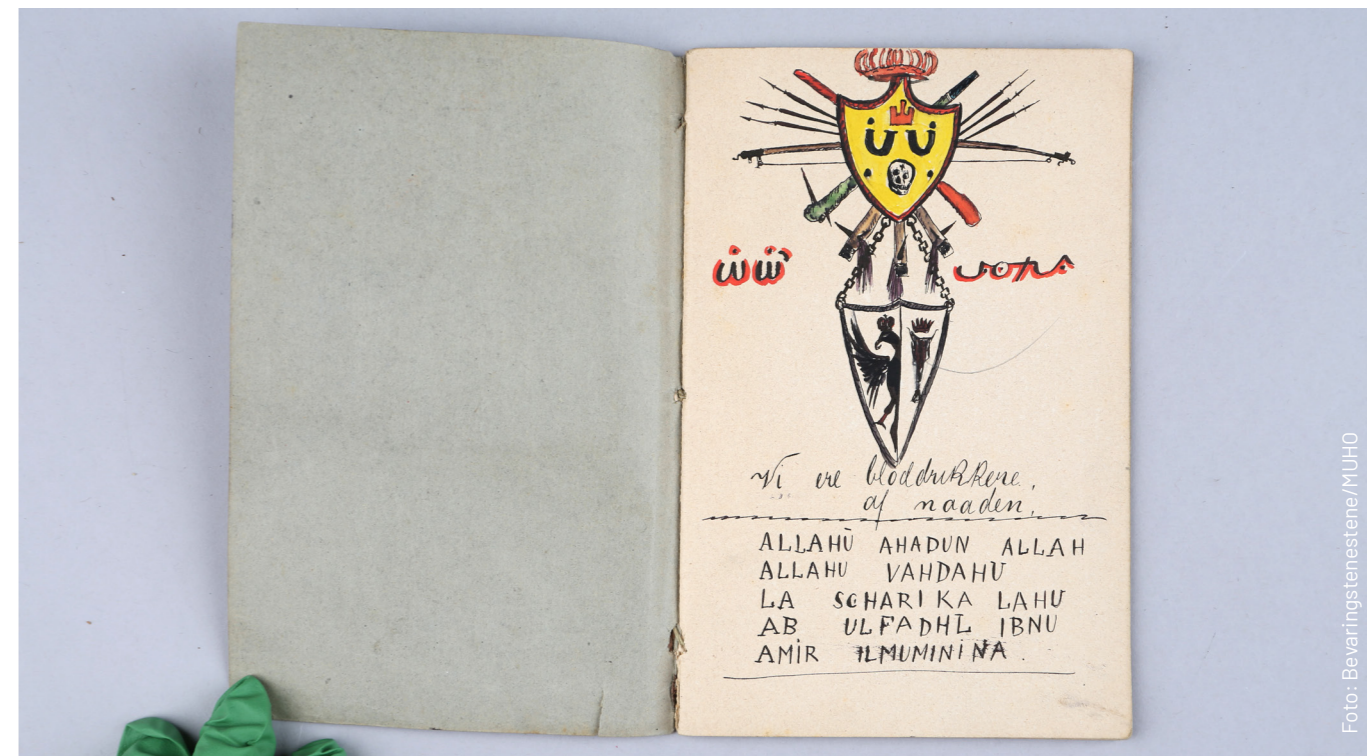 Vi ere bloddrukkene,
af naaden,
ALLAHŪ AHADUN ALLAH
ALLAHU VAHDAHU
LA SCHARIKA LAHU
AB ULFADHL IBNU
AMIR ILMUMINI NA
Foto: Bevaringstenestene/MUHO